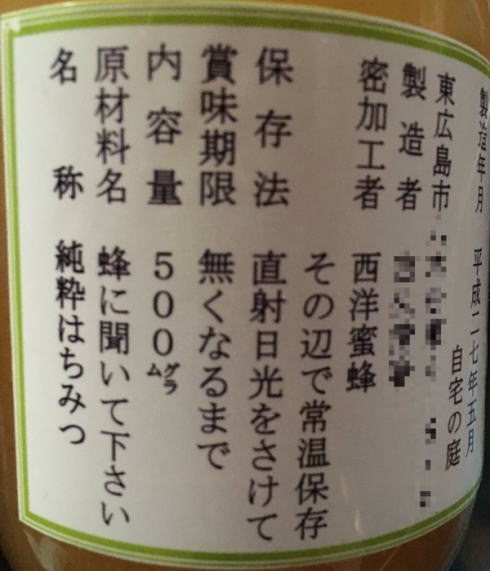 名称　純粋はちみつ
原材料名　蜂に聞いて下さい
内容量　500グラム
賞味期限　無くなるまで
保存法　直射日光をさけて
その辺で常温保存
密加工者　西洋蜜蜂
製造者
東広島市
自宅の庭
製造年月　平成二七年五月